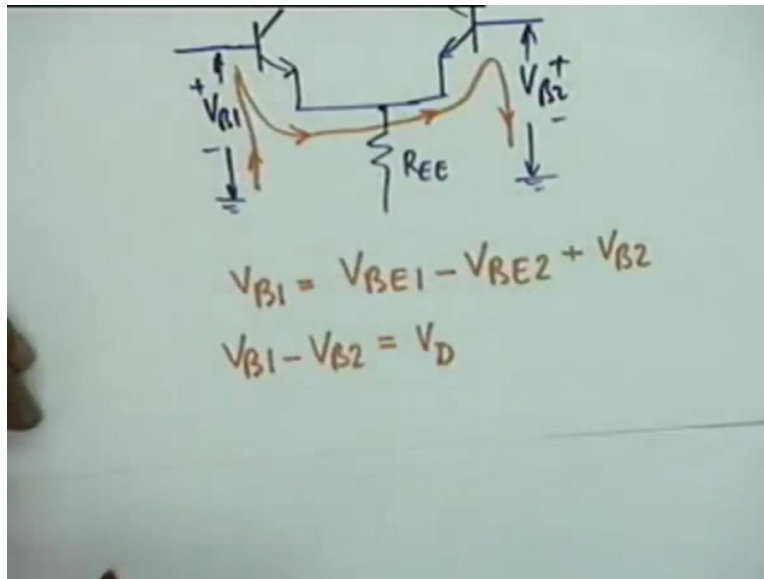 + V_B1 -
V_B2 + -
R_EE
V_B1 = V_BE1 - V_BE2 + V_B2
V_B1 - V_B2 = V_D